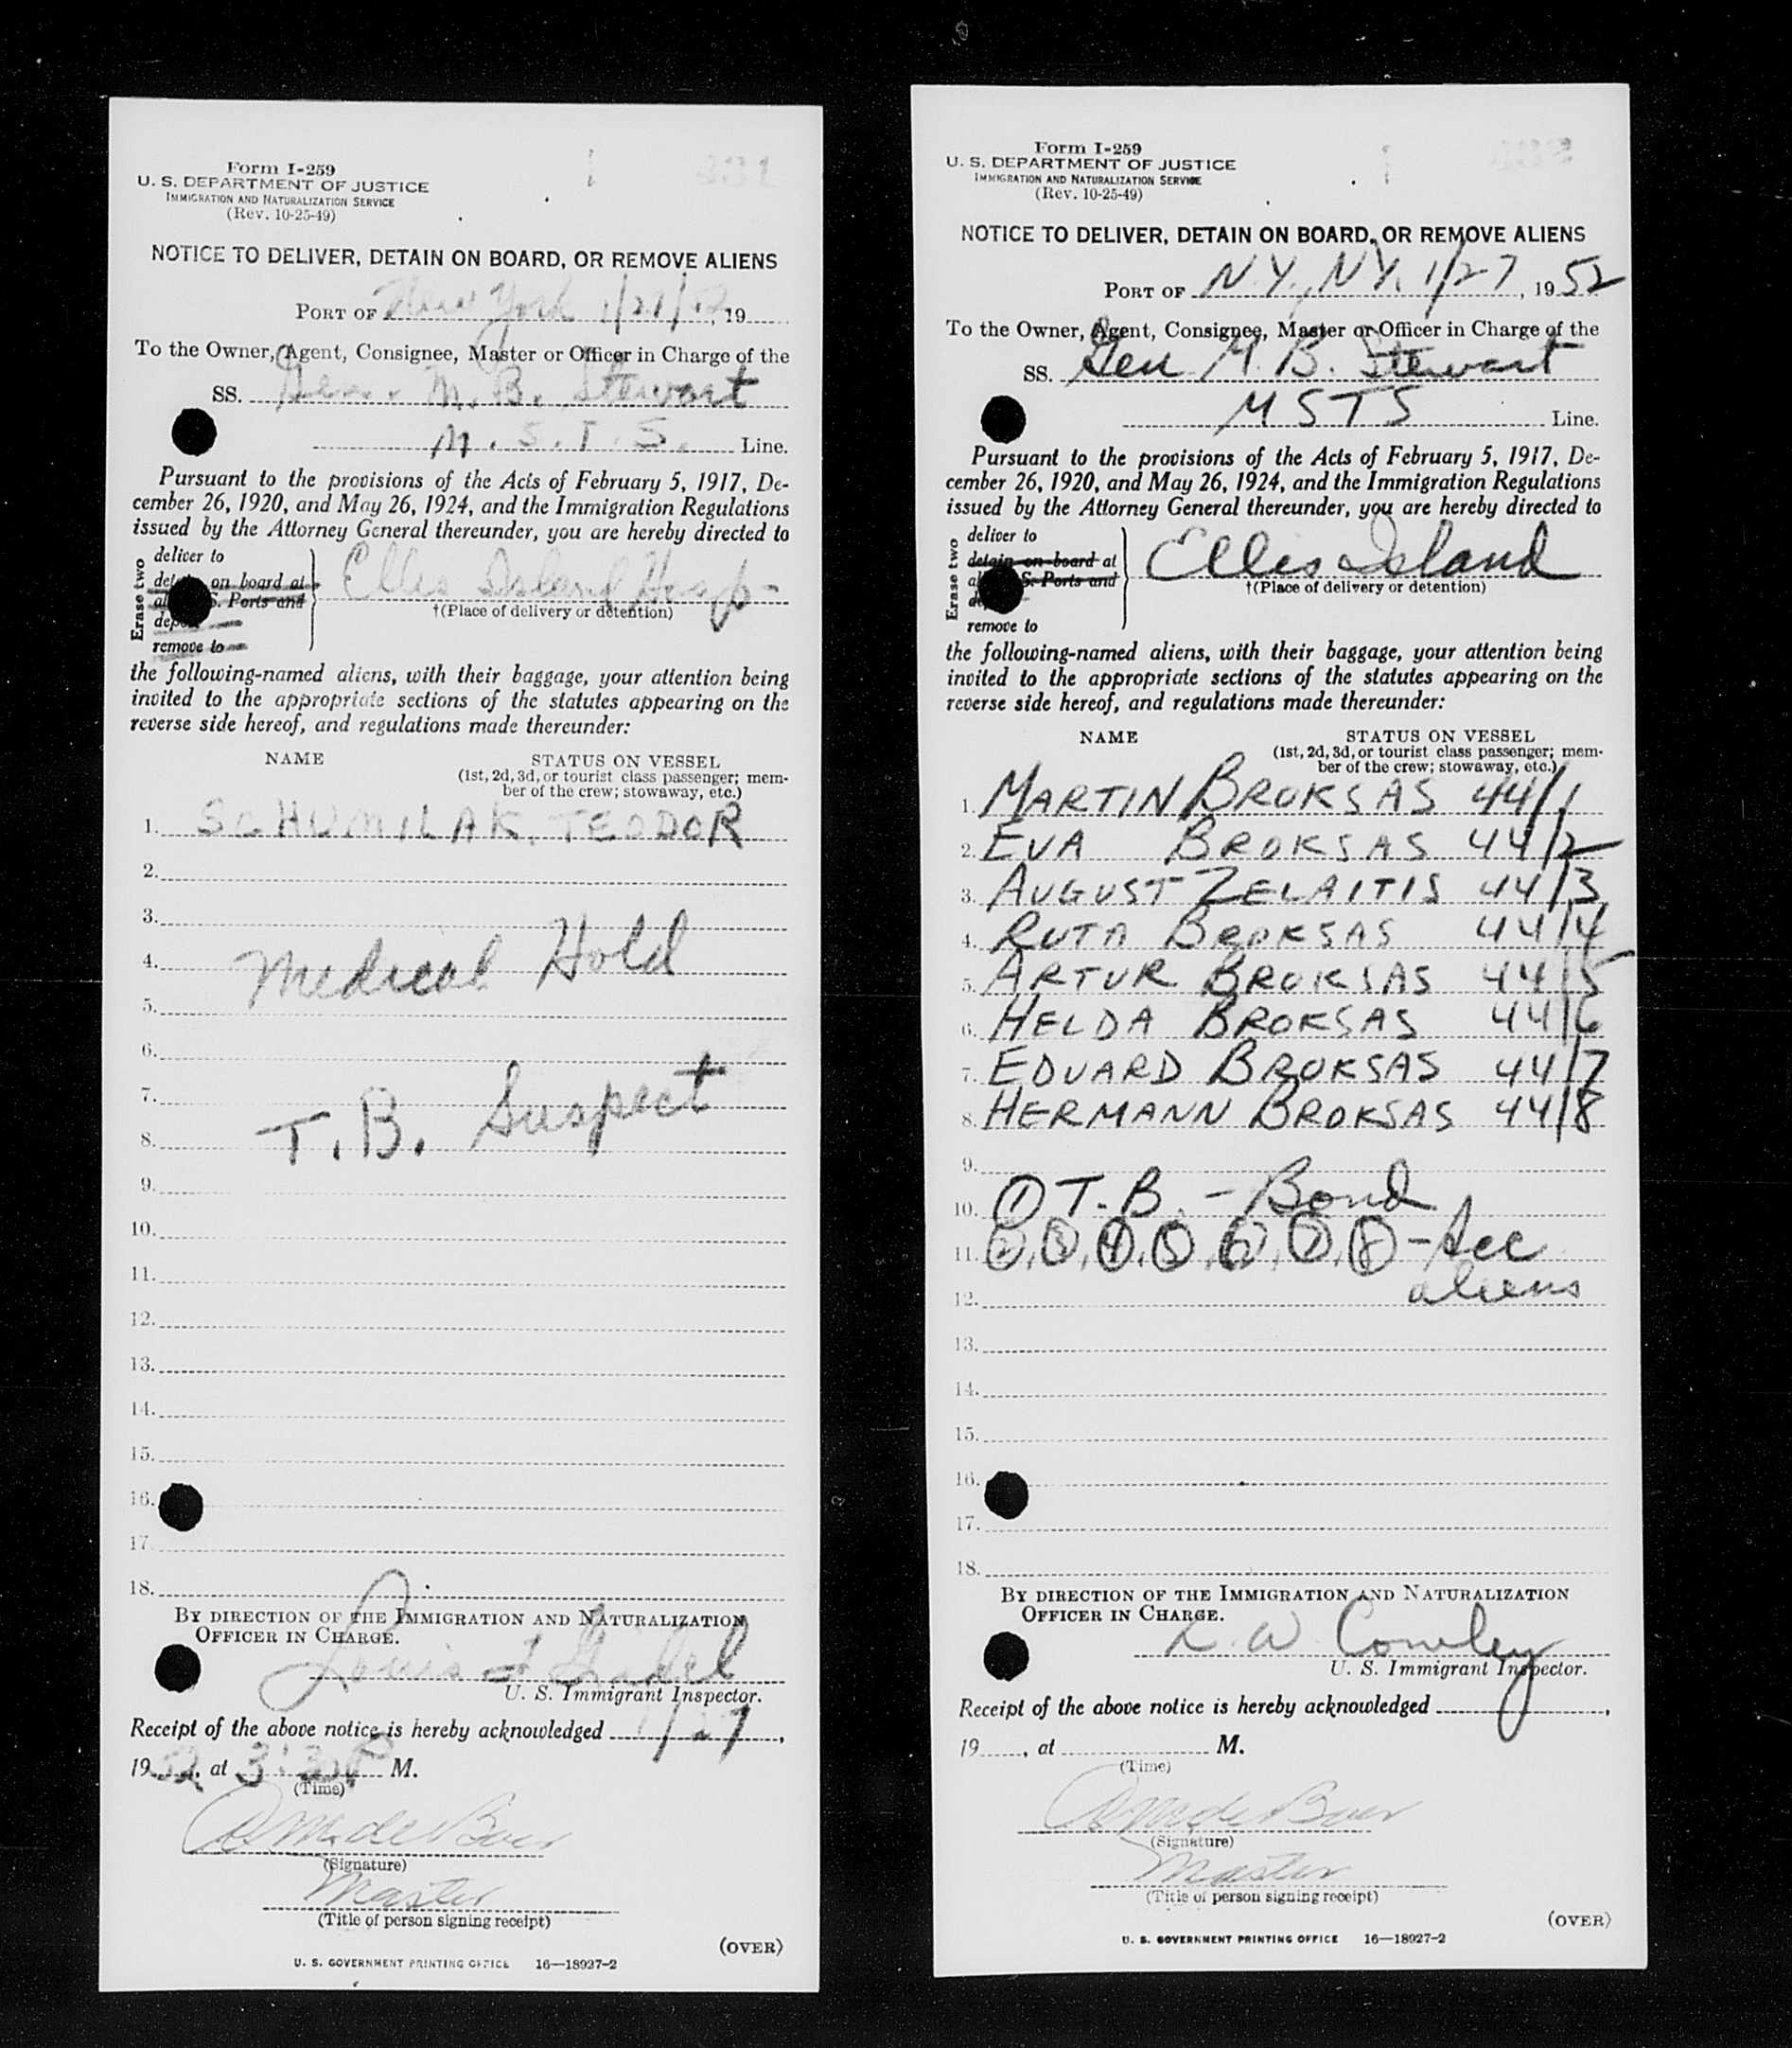 Form I-259
U. S. DEPARTMENT OF JUSTICE
IMMIGRATION AND NATURALIZATION SERVICE
(Rev. 10-25-49)
NOTICE TO DELIVER, DETAIN ON BOARD, OR REMOVE ALIENS
PORT OF New York 1/27/52, 19
To the Owner, Agent, Consignee, Master or Officer in Charge of the
SS. Gen. M. B. Stewart
M. S. T. S. Line.
Pursuant to the provisions of the Acts of February 5, 1917, De-
cember 26, 1920, and May 26, 1924, and the Immigration Regulations
issued by the Attorney General thereunder, you are hereby directed to
Erase two
deliver to
on board at
S. Ports and
remove to
Ellis Island Hosp
†(Place of delivery or detention)
the following-named aliens, with their baggage, your attention being
invited to the appropriate sections of the statutes appearing on the
reverse side hereof, and regulations made thereunder:
NAME STATUS ON VESSEL
(1st, 2d, 3d, or tourist class passenger; mem-
ber of the crew; stowaway, etc.)
1. SCHUMILAK, TEODOR
2.
3.
4. Medical Hold
5.
6.
7.
8. T.B. Suspect
9.
10.
11.
12.
13.
14.
15.
16.
17.
18.
BY DIRECTION OF THE IMMIGRATION AND NATURALIZATION
OFFICER IN CHARGE.
Louis
U. S. Immigrant Inspector.
Receipt of the above notice is hereby acknowledged 1/27,
1952, at 3:30P M.
(Time)
(Signature)
Master
(Title of person signing receipt)
(OVER)
U. S. GOVERNMENT PRINTING OFFICE 16—18927-2
Form I-259
U. S. DEPARTMENT OF JUSTICE
IMMIGRATION AND NATURALIZATION SERVICE
(Rev. 10-25-49)
NOTICE TO DELIVER, DETAIN ON BOARD, OR REMOVE ALIENS
PORT OF N.Y., N.Y. 1/27, 1952
To the Owner, Agent, Consignee, Master or Officer in Charge of the
SS. Gen M. B. Stewart
MSTS Line.
Pursuant to the provisions of the Acts of February 5, 1917, De-
cember 26, 1920, and May 26, 1924, and the Immigration Regulations
issued by the Attorney General thereunder, you are hereby directed to
Erase two
deliver to
detain on board at
S. Ports and
remove to
Ellis Island
†(Place of delivery or detention)
the following-named aliens, with their baggage, your attention being
invited to the appropriate sections of the statutes appearing on the
reverse side hereof, and regulations made thereunder:
NAME STATUS ON VESSEL
(1st, 2d, 3d, or tourist class passenger; mem-
ber of the crew; stowaway, etc.)
1. MARTIN BROKSAS 44/1
2. EVA BROKSAS 44/2
3. AUGUST ZELAITIS 44/3
4. RUTA BROKSAS 44/4
5. ARTUR BROKSAS 44/5
6. HELDA BROKSAS 44/6
7. EDUARD BROKSAS 44/7
8. HERMANN BROKSAS 44/8
9.
10. ① T.B. - Bond
11. ②, ③, ④, ⑤, ⑥, ⑦, ⑧ - Acc
12. aliens
13.
14.
15.
16.
17.
18.
BY DIRECTION OF THE IMMIGRATION AND NATURALIZATION
OFFICER IN CHARGE.
R. W. Cowley
U. S. Immigrant Inspector.
Receipt of the above notice is hereby acknowledged ,
19 , at M.
(Time)
(Signature)
Master
(Title of person signing receipt)
(OVER)
U. S. GOVERNMENT PRINTING OFFICE 16—18927-2